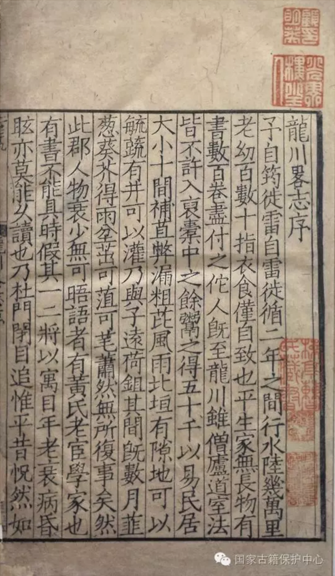 龍川畧志序
予自筠徙雷自雷徙循二年之間行水陸幾萬里
老幼百數十指衣食僅自致也平生家無長物有
書數百卷盡付之佗人旣至龍川雖僧廬道室法
皆不許入裒橐中之餘鬻之得五十千以易民居
大小十間補苴弊漏粗芘風雨北垣有隙地可以
毓蔬有井可以灌乃與子遠荷鉏其間旣數月韮
葱葵芥得雨坌出可菹可芼蕭然無所復事矣然
此郡人物衰少無可晤語者有黃氏老宦學家也
有書不能具時假其一二將以寓目年老衰病昏
眩亦莫能久讀也乃杜門閉目追惟平昔怳然如
国家古籍保护中心